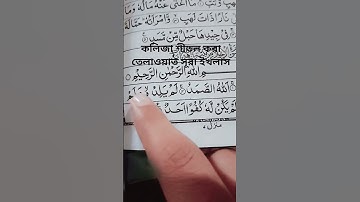 مَا اَغْنٰى عَنْهُ مَالُهٗ وَمَا
نَارًا ذَاتَ لَهَبٍ وَّامْرَاَتُهٗ حَمَّالَةَ
فِيْ جِيْدِهَا حَبْلٌ مِّنْ مَّسَدٍ
কলিজা শীতল করা
তেলাওয়াত সুরা ইখলাস
بِسْمِ اللّٰهِ الرَّحْمٰنِ الرَّحِيْمِ
اَللّٰهُ الصَّمَدُ لَمْ يَلِدْ وَلَمْ
لَمْ يَكُنْ لَّهٗ كُفُوًا اَحَدٌ
منزل